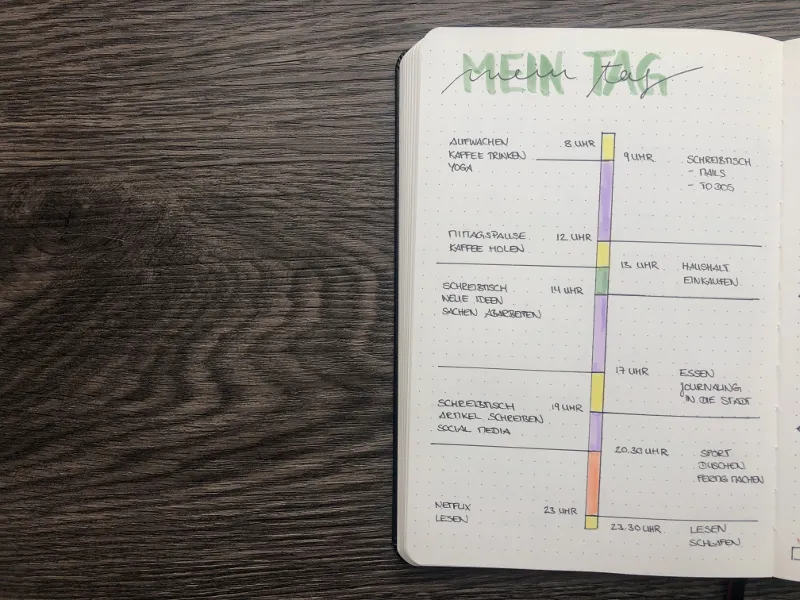 MEIN TAG
mein tag
AUFWACHEN
KAFFEE TRINKEN
YOGA
8 UHR
9 UHR
SCHREIBTISCH
- MAILS
- TO DOS
MITTAGSPAUSE
KAFFEE HOLEN
12 UHR
13 UHR
HAUSHALT
EINKAUFEN
SCHREIBTISCH
NEUE IDEEN
SACHEN ABARBEITEN
14 UHR
17 UHR
ESSEN
JOURNALING
IN DIE STADT
SCHREIBTISCH
ARTIKEL SCHREIBEN
SOCIAL MEDIA
19 UHR
20.30 UHR
SPORT
DUSCHEN
FERTIG MACHEN
NETFLIX
LESEN
23 UHR
23.30 UHR
LESEN
SCHLAFEN